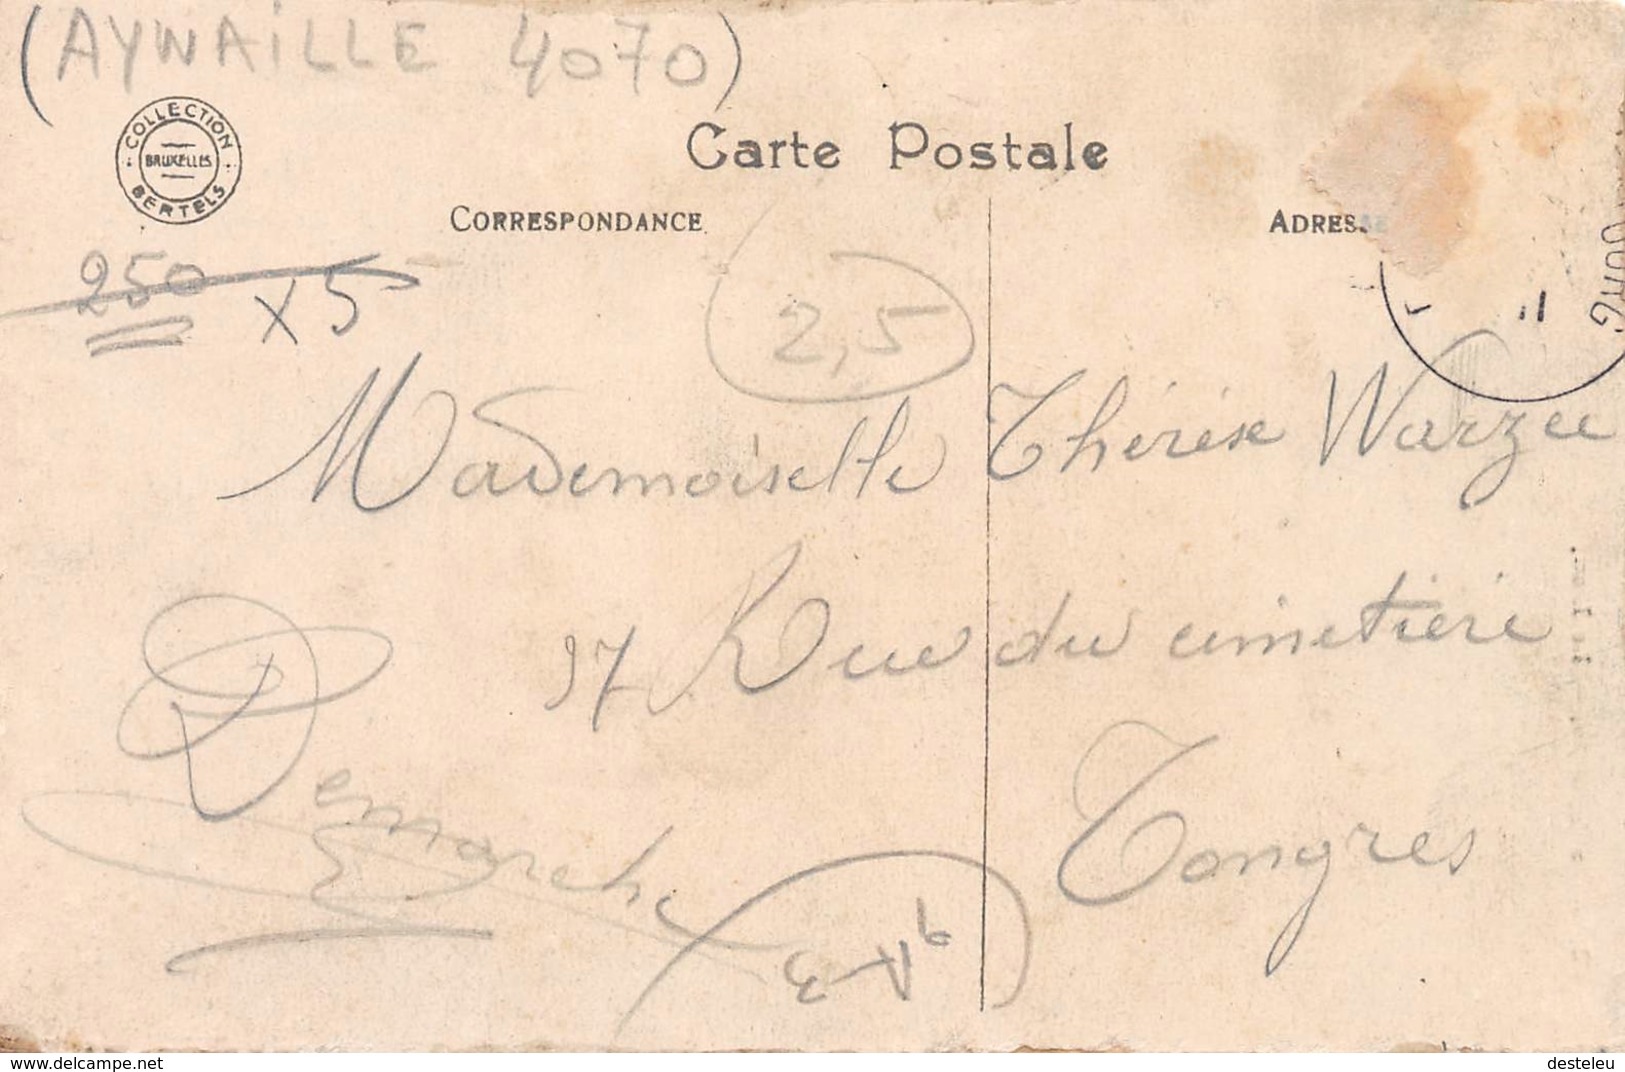 (AYWAILLE 4070)
COLLECTION
BRUXELLES
BERTELS
Carte Postale
CORRESPONDANCE
ADRESSE
250 x5
2,5
Mademoiselle Thérèse Warzee
37 Rue du cimetière
Tongres
Demarche
www.delcampe.net
desteleu